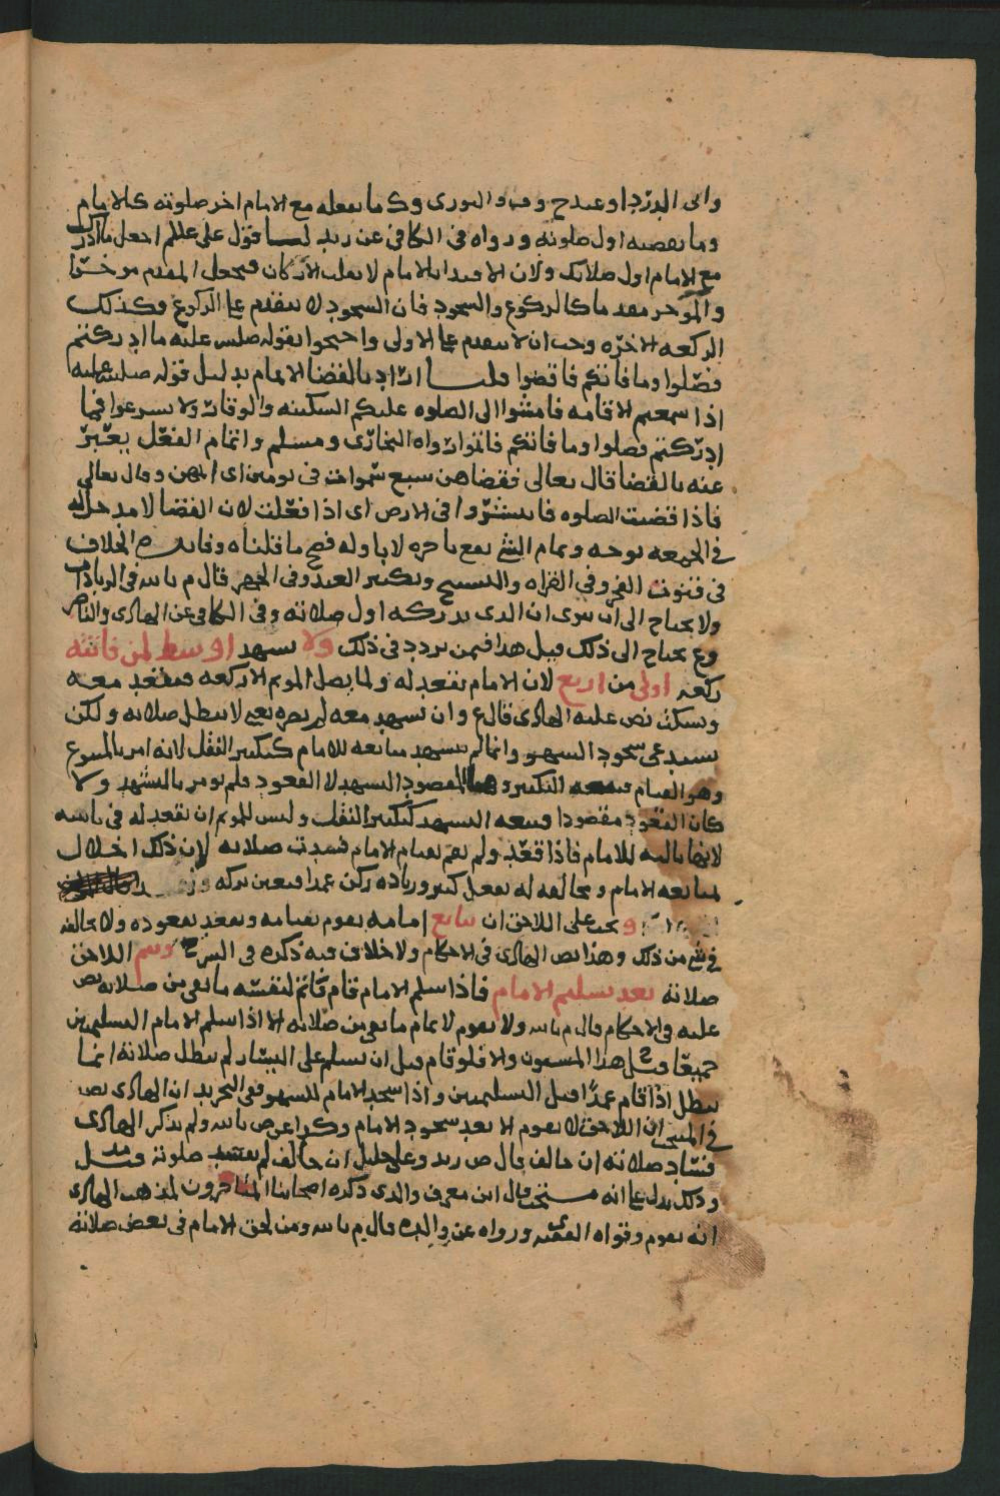 وابي الدرداء وعند ح وف والثوري وك ما يفعله مع الامام اخر صلوته كالامام
وما يقضيه اول صلوته ورواه في الكافي عن زيد لنا قول علي عللم اجعل ما ادركت
مع الامام اول صلاتك ولان الاقتدا بالامام لا يقلب الاركان فيجعل المقدم موخرا
والموخر مقدما كالركوع والسجود فان السجود لا يتقدم على الركوع وكذلك
الركعه الاخره وجب ان لا تتقدم على الاولى واحتجوا بقوله صلى عليه ما ادركتم
فصلوا وما فاتكم فاقضوا قلنا اراد بالقضا الاتمام بدليل قوله صلى عليه
اذا سمعتم الاقامه فامشوا الى الصلوه عليكم السكينه والوقار ولا تسرعوا فما
ادركتم فصلوا وما فاتكم فاتموا رواه البخاري ومسلم واتمام الفعل يعبر
عنه بالقضا قال تعالى فقضاهن سبع سموات في يومين اي اتمهن وقال تعالى
فاذا قضيت الصلوه فانتشروا في الارض اي اذا فعلت لان القضا لا مدخل له
في الجمعه بوجه وتمام الشي يقع باخره لا باوله فصح ما قلناه وفايدة الخلاف
في قنوت الفجر وفي القراه والتسبيح وتكبير العيد وفي الجهر قال م بالله في الزيادات
ولا يحتاج الى ان ينوي ان الذي يدركه اول صلاته وفي الكافي عن الهادي والناصر
وع يحتاج الى ذلك قيل هذا فيمن تردد في ذلك ولا يتشهد الاوسط لمن فاتته
ركعه اولى من اربع لان الامام يقعد له ولما يصل الموتم الا ركعه فيقعد معه
ويسكت نص عليه الهادي قال ع وان تشهد معه لم يضره يعني لا تبطل صلاته ولكن
يستدعي سجود السهو وانما لم يتشهد متابعه للامام كتكبير النقل لانه امر بالمتبوع
وهو القيام فتبعه التكبير وهنا المقصود التشهد لا القعود فلم يومر بالتشهد ولا
كان القعود مقصودا فيتبعه التشهد كتكبير النقل وليس للموتم ان يقعد له في ثانيته
لانها ثالثه للامام فاذا قعد ولم يقم بقيام الامام فسدت صلاته لان ذلك اخلال
بمتابعه الامام ومخالفه له بفعل كثير وزياده ركن عمدا فتعين تركه
ويجب على اللاحق ان يتابع امامه يقوم بقيامه ويقعد بقعوده ولا يخالفه
في شي من ذلك وهذا نص الهادي في الاحكام ولا خلاف فيه ذكره في الشرح ويتم اللاحق
صلاته بعد تسليم الامام فاذا سلم الامام قام فاتم لنفسه ما بقي من صلاته نص
عليه في الاحكام قال م بالله ولا يقوم لاتمام ما بقي من صلاته الا اذا سلم الامام التسليمتين
جميعا قيل هذا المسنون والا فلو قام قبل ان يسلم على اليسار لم تبطل صلاته انما
تبطل اذا قام عمدا قبل التسليمتين واذا سجد الامام للسهو ففي التحرير ان الهادي نص
في المنتخب ان اللاحق لا يقوم الا بعد سجود الامام وكذا عرض بالله ولم يذكر الهادي
فساد صلاته ان خالف قال ص زيد وعلي خليل ان خالف لم تفسد صلوته قيل
وذلك يدل على انه مستحب قال ابن معرف والذي ذكره اصحابنا المتاخرون لمذهب الهادي
انه يقوم وقواه الفقيه ي ورواه عن والده قال م بالله ومن لحق الامام في بعض صلاته